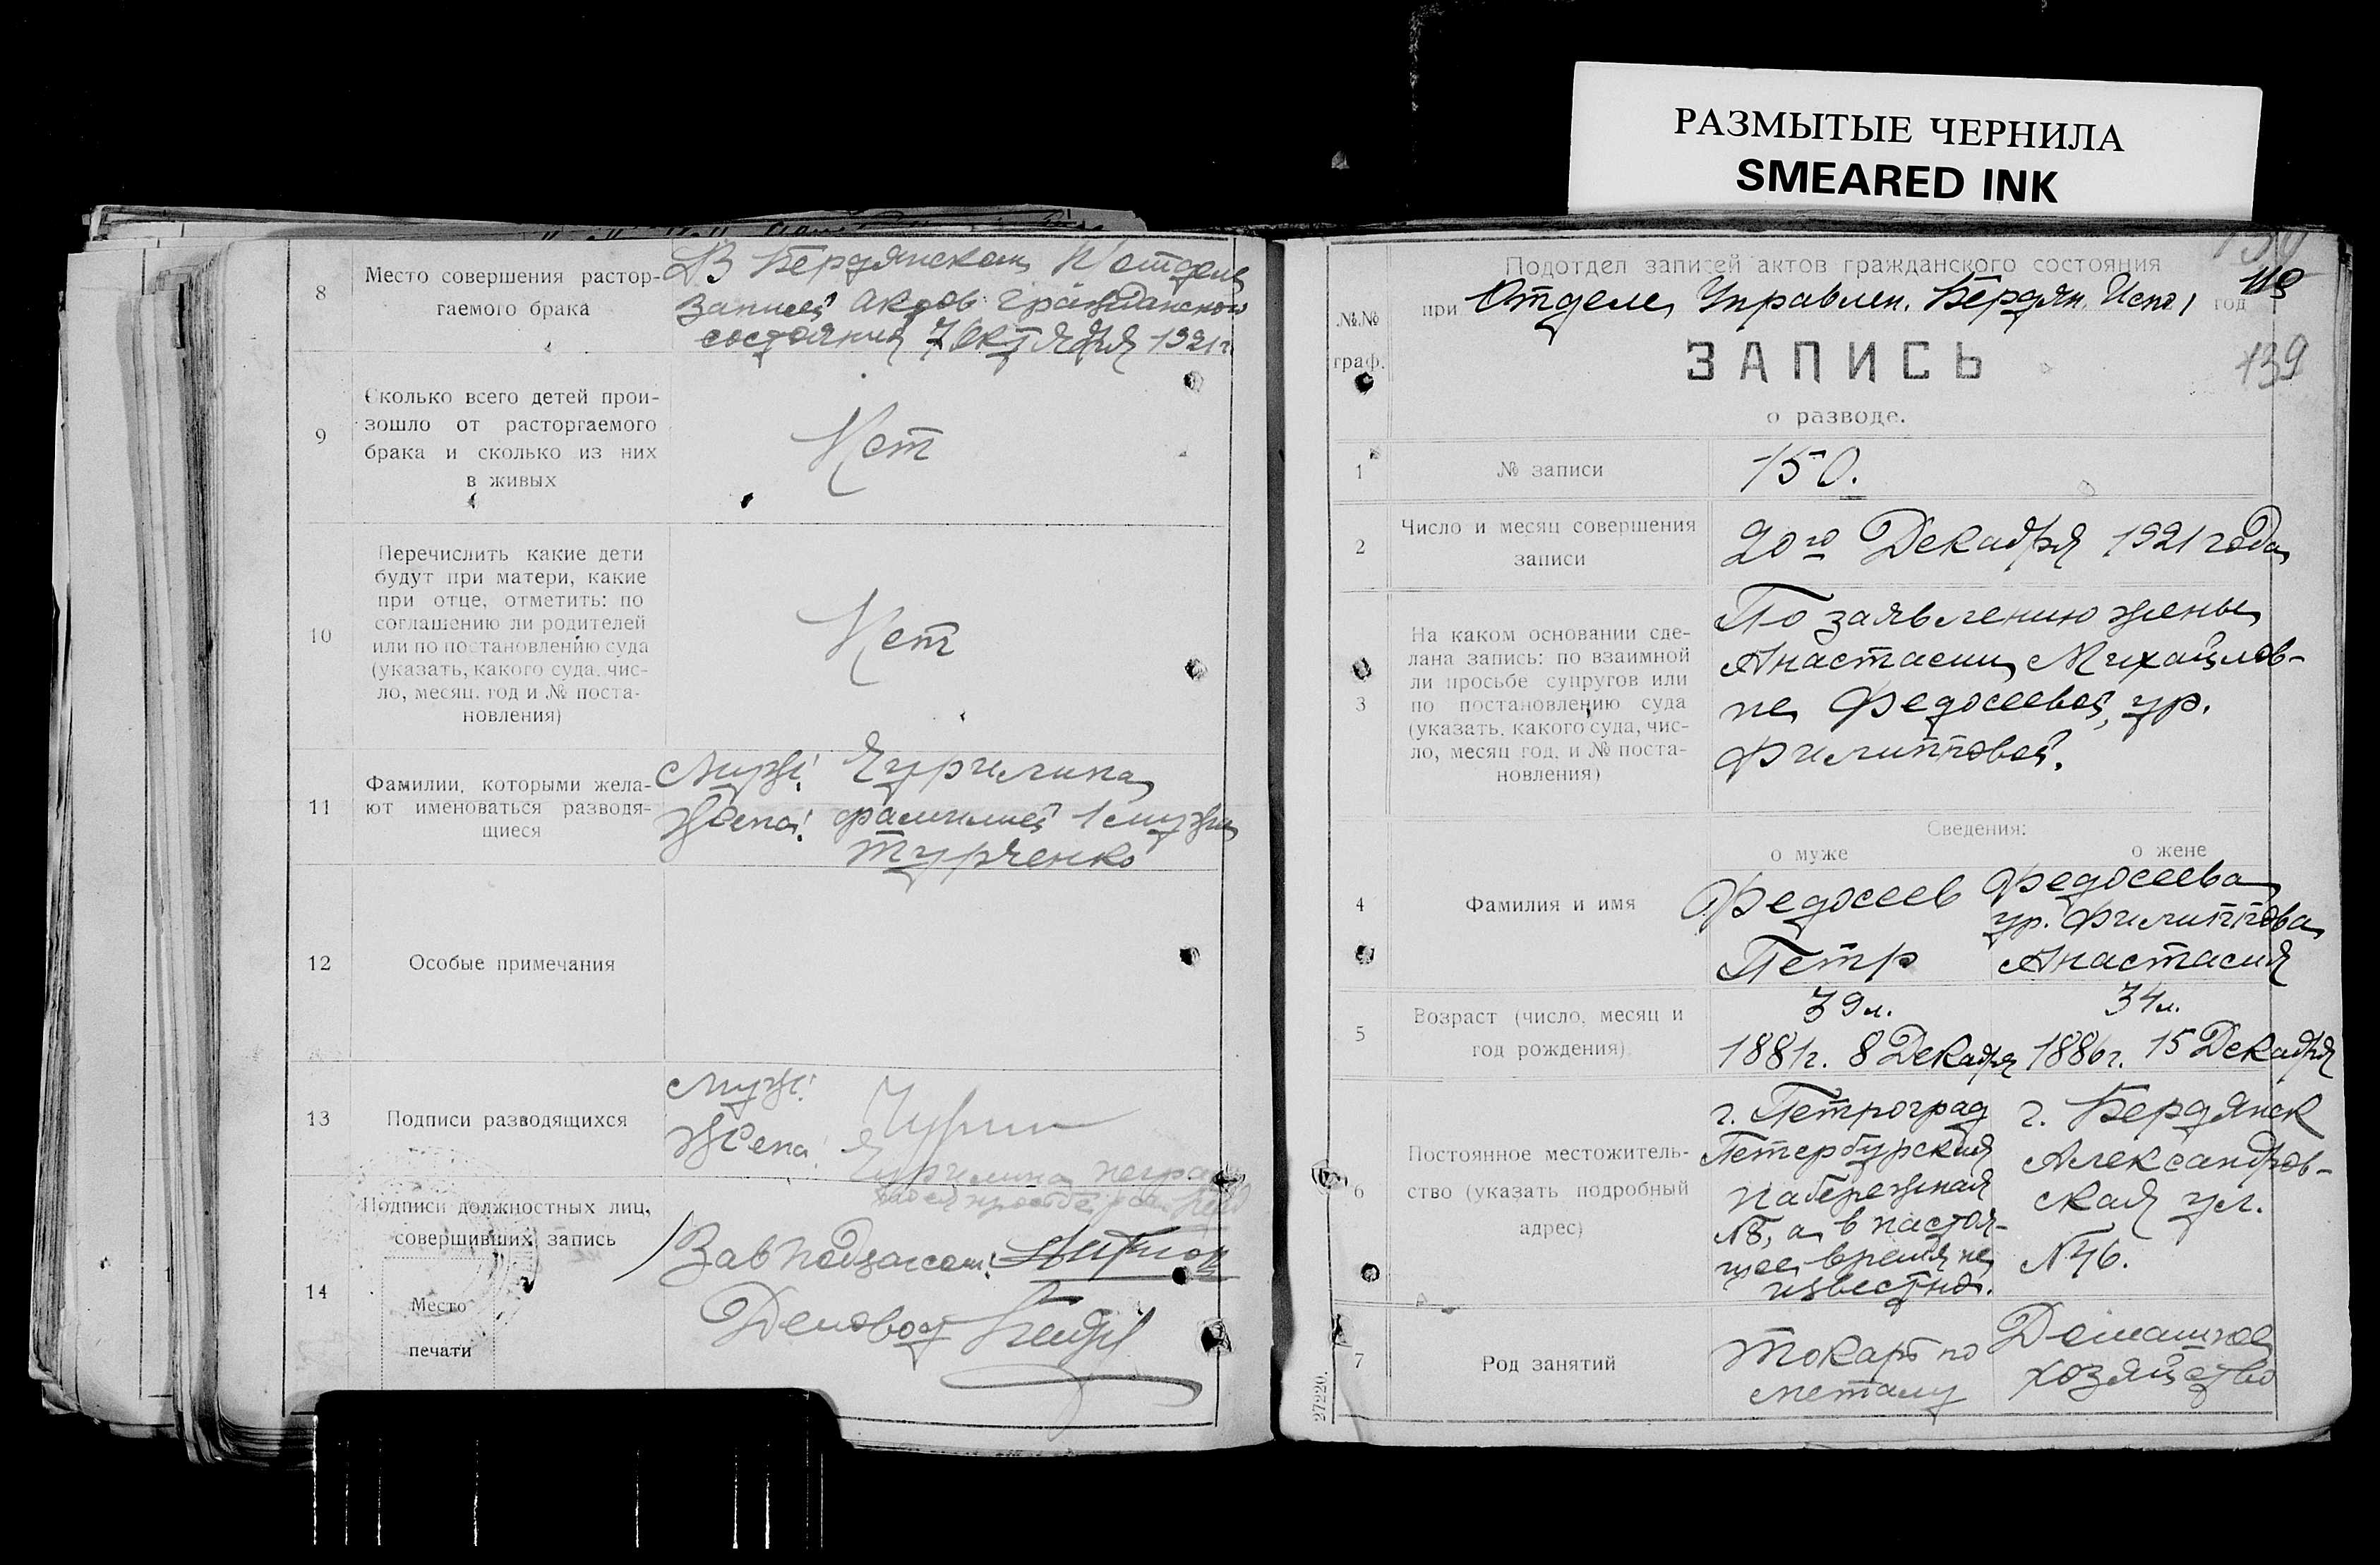 РАЗМЫТЫЕ ЧЕРНИЛА
SMEARED INK
8
Место совершения растор-
гаемого брака
В Бердянском П/отделе
записей актов гражданского
состояния 7 октября 1921 г.
9
Сколько всего детей прои-
зошло от расторгаемого
брака и сколько из них
в живых
Нет
10
Перечислить какие дети
будут при матери, какие
при отце, отметить: по
соглашению ли родителей
или по постановлению суда
(указать, какого суда, чис-
ло, месяц, год и № поста-
новления)
Нет
11
Фамилии, которыми жела-
ют именоваться разводя-
щиеся
Муж: Чурилина
Жена: фамилией 1 мужа
Турченко
12
Особые примечания
13
Подписи разводящихся
Муж:
Жена:
Чурилина
14
Подписи должностных лиц,
совершивших запись
Место
печати
Зав подзагсом:
Деловод
№№
граф.
Подотдел записей актов гражданского состояния
при Отделе Управлен. Бердян. Испол год
139
ЗАПИСЬ
о разводе.
1
№ записи
150.
2
Число и месяц совершения
записи
20го Декабря 1921 года
3
На каком основании сде-
лана запись: по взаимной
ли просьбе супругов или
по постановлению суда
(указать, какого суда, чис-
ло, месяц год, и № поста-
новления)
По заявлению жены
Анастасии Михайлов-
не Федосеевой, ур.
Филипповой.
Сведения:
о муже
о жене
4
Фамилия и имя
Федосеев
Петр
Федосеева
ур. Филиппова
Анастасия
5
Возраст (число, месяц и
год рождения)
39 л.
1881 г. 8 Декабря
34 л.
1886 г. 15 Декабря
6
Постоянное местожитель-
ство (указать подробный
адрес)
г. Петроград
Петербурская
набережная
№, а в настоя-
щее время не
известно.
г. Бердянск
Александров-
ская ул.
№ 46.
7
Род занятий
Токарь по
металу
Домашнее
хозяйство
27220.